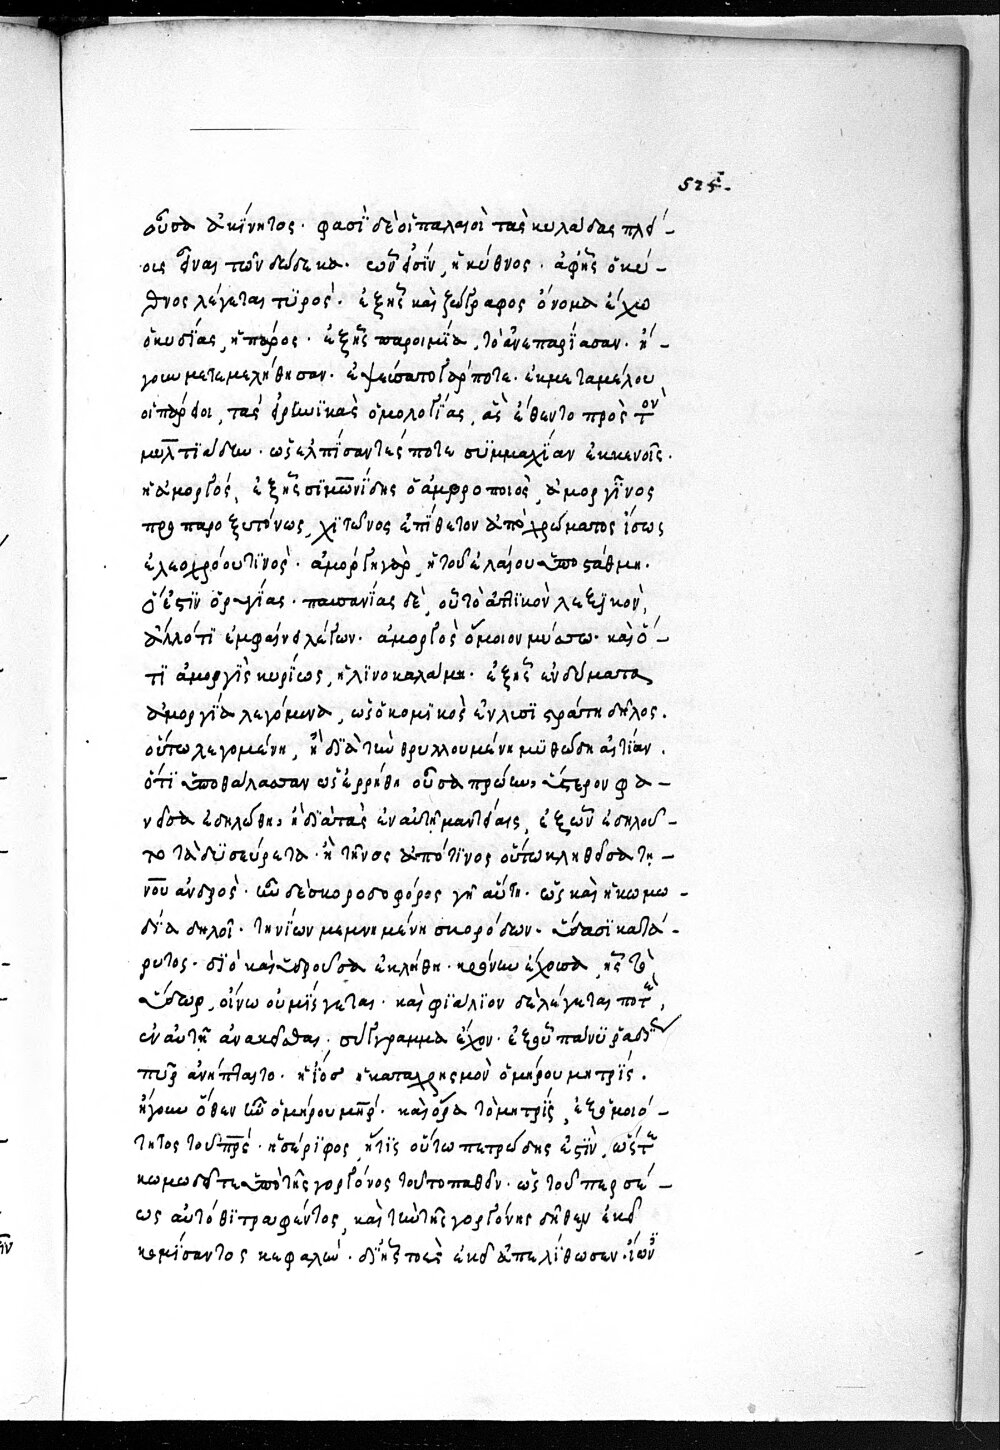 525.
οὖσα ἀκίνητος. φασὶ δὲ οἱ παλαιοὶ τὰς κυκλάδας πλεί-
ους εἶναι τῶν δώδεκα. ὧν εἰσὶν, ἡ κύθνος. ἀφ' ἧς ὁ κύ-
θνος λέγεται τυρός. ἐξ ἧς καὶ ζωγράφος ὄνομα ἔχων
ὁ κυδίας, ἡ πάρος. ἐξ ἧς παροιμία, τὸ ἀνεπαρίασαν. ἤ-
γουν μετεμελήθησαν. ἐψεύσαντο γάρ ποτε. ἐκ μεταμέλου
οἱ πάριοι, τὰς εἰρηνικὰς ὁμολογίας, ἃς ἔθεντο πρὸς τὸν
μιλτιάδην. ὡς ἐλπίσαντές ποτε συμμαχίαν ἐκ κενοῖς.
ἡ ἀμοργός, ἐξ ἧς σιμωνίδης ὁ ἰαμβοποιὸς, ἀμοργῖνος
προπαροξυτόνως, χιτῶνος ἐπίθετον ἀπὸ χρώματος ἴσως
ἐλαιοχρόου τινός. ἀμόργη γὰρ, ἡ τοῦ ἐλαίου ὑποστάθμη.
ὅ ἐστιν ὁ τρυγίας. παυσανίας δὲ, οὐ τὸ ἀττικὸν λεξικὸν,
ἀλλό τι ἐμφαίνει λέγων. ἀμοργὸς ὅμοιον βύσσω. καὶ ὅ-
τι ἀμοργὶς κυρίως, ἡ λινοκαλάμη. ἐξ ἧς ἐνδύματα
ἀμοργία λεγόμενα, ὡς ὁ κωμικὸς ἐν λυσιστράτη δῆλος.
οὕτω λεγομένη, ἢ διὰ τὴν θρυλλουμένην μυθώδη αἰτίαν.
ὅτι ὑποθάλασσαν ὡς ἐρρήθη οὖσα πρώην, ὕστερον φα-
νεῖσα ἐδηλώθη, ἢ διὰ τὰς ἐν αὐτῇ μαντείας, ἐξ ὧν ἐδηλοῦ-
το τὰ δυσεύρετα. ἡ τῆνος ἀπό τινος οὕτω κληθεῖσα τή-
νου ἀνδρός. ἦν δὲ σκοροδοφόρος γῆ αὕτη. ὡς καὶ ἡ κωμω-
δία δηλοῖ. τηνίων μεμνημένη σκορόδων. ὕδασι κατά-
ρυτος. διὸ καὶ ὑδροῦσσα ἐκλήθη. κρήνην ἔχουσα, ἧς τὸ
ὕδωρ, οἴνω οὐ μίγνυται. καὶ φιάλιον δὲ λέγεταί ποτε,
ἐν αὐτῇ ἀνακεῖσθαι, σύγγραμμα ἔχον. ἐξ οὗ πάνυ ῥαδίως
πῦρ ἀνήπτετο. ἡ ἴος ἡ κατὰ χρησμὸν ὁμήρου μητρίς.
ἤγουν ὅθεν ἦν ὁμήρου μήτηρ. καὶ ὅρα τὸ μητρίς, ἐξ ὁμοιό-
τητος τοῦ πατρίς. ἡ σέριφος, ἥτις οὕτω πετρώδης ἐστὶν, ὥστε
κωμωδεῖται ὑπὸ τῆς γοργόνος τοῦτο παθεῖν. ὡς τοῦ περσέ-
ως αὐτόθι τραφέντος, καὶ τὴν τῆς γοργόνης δῆθεν ἐκεῖ
κομίσαντος κεφαλήν. δι' ἧς τοὺς ἐκεῖ ἀπελίθωσεν. ὧν